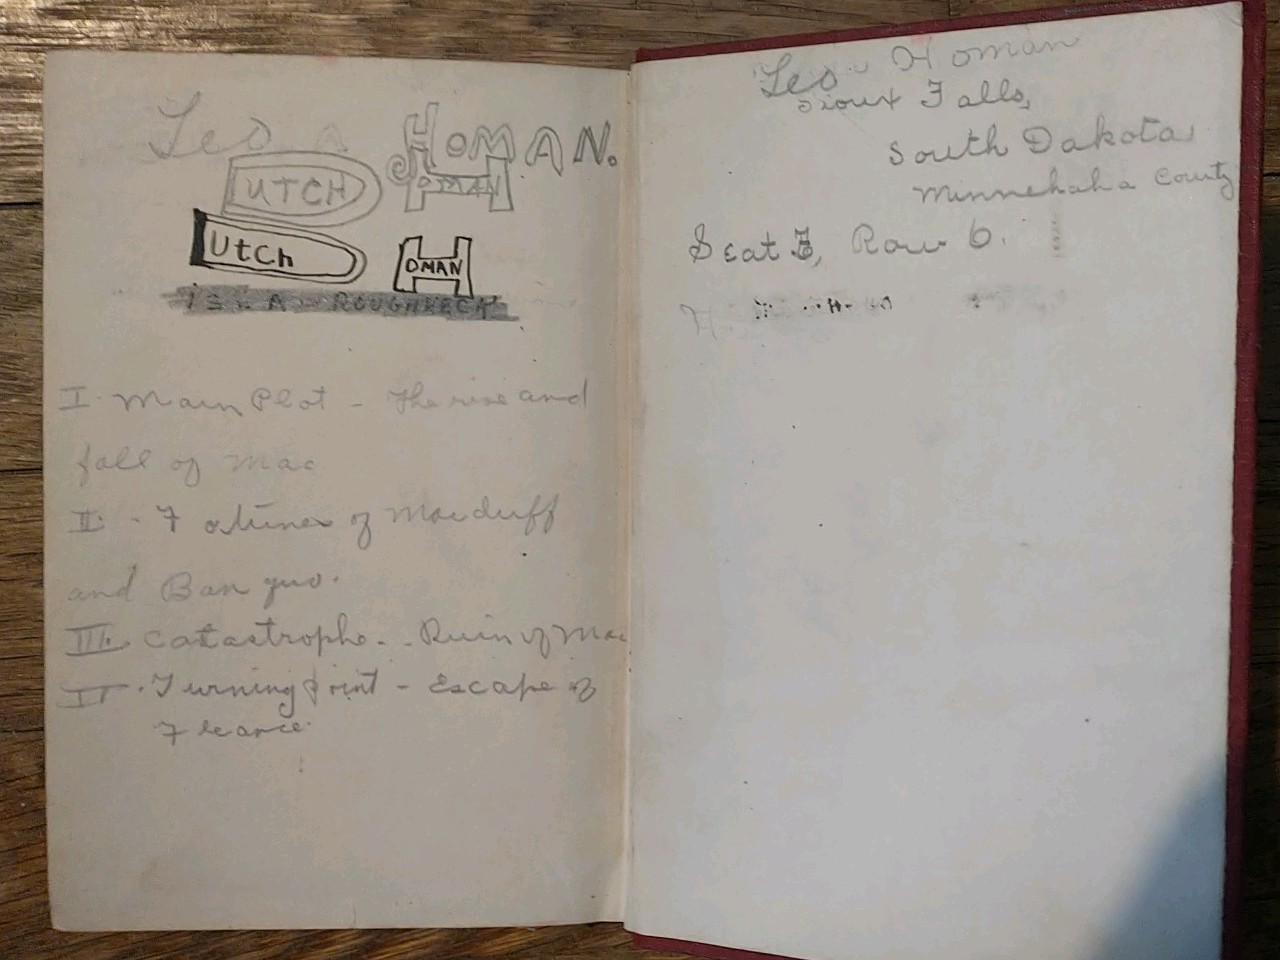 Leo A HOMAN.
UTCH OMAN
Utch HOMAN
is a ROUGHNECK
I. Main Plot - The rise and
fall of Mac
II. - Fortunes of Macduff
and Banquo.
III. Catastrophe - Ruin of Mac
IV. Turning Point - Escape of
Fleance
Leo Homan
Sioux Falls,
South Dakota
Minnehaha County
Seat 3, Row 6.